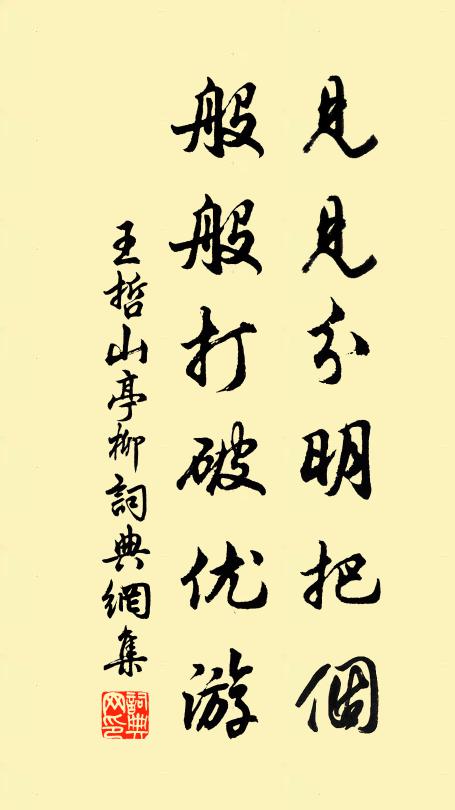 見見分明把個
般般打破优游
王哲山亭柳詞典網集
詞典網印